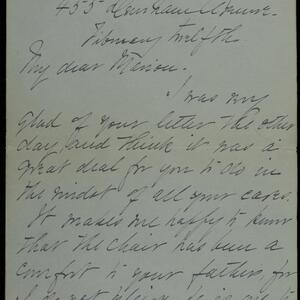 455
February twelfth
My dear Marion.
I was very
glad of your letter the other
day, and think it was a
great deal for you to do in
the midst of all your cares.
It makes me happy to know
that the chair has been a
comfort to your father, for